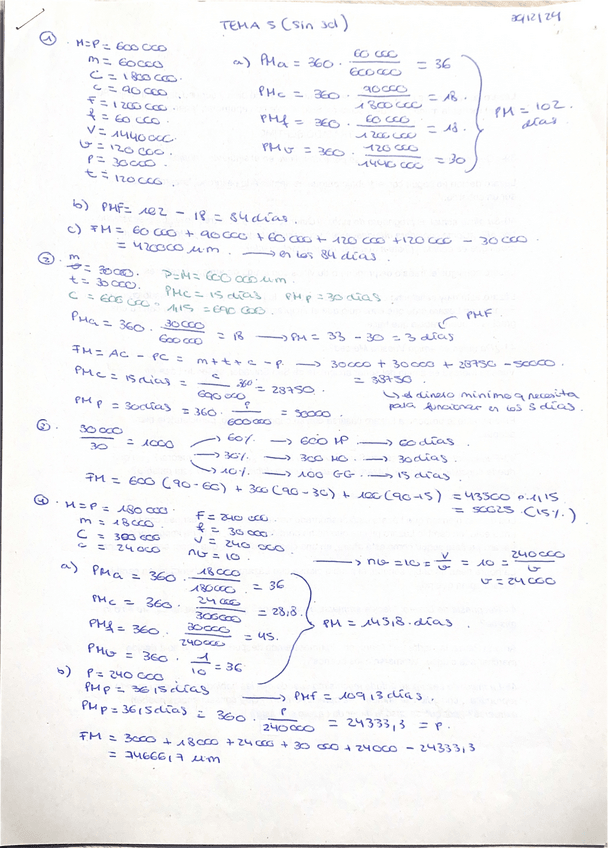 TEMA 5 (sin sol)
① · M=P = 600 000
m = 60000
C = 1800000.
c = 90000
F = 1200000.
f = 60000.
V = 1440000.
v = 120000.
P = 30000.
t = 120000.
a) PMa = 360 · 60 000 / 600000 = 36
PMc = 360 · 90000 / 1800000 = 18.
PMf = 360 · 60000 / 1200000 = 18.
PMv = 360 · 120000 / 1440000 = 30
PM = 102 días.
b) PMF = 102 - 18 = 84 días.
c) FM = 60000 + 90000 + 60000 + 120000 + 120000 - 30000
= 420000 um. → en los 84 días.
② m = 30000.
t = 30000.
P=M= 600000 um.
PMc = 15 días PMp = 30 días.
PMa = 360 · 30000 / 600000 = 18 → PM = 33 - 30 = 3 días
PMF
FM = AC - PC = m + t + c - p. → 30000 + 30000 + 28750 - 50000
= 38750.
PMc = 15 días = c / 690000 · 360 = 28750.
↳ es dinero mínimo q necesita
para funcionar en los 3 días.
PMp = 30 días = 360 · P / 600000 = 50000.
③ 30000 / 30 = 1000
→ 60% → 600 MP → 60 días
→ 30% → 300 MO → 30 días.
→ 10% → 100 GG → 15 días.
FM = 600 (90-60) + 300 (90-30) + 100 (90-15) = 43500 · 1,15
= 50025 (15%)
④ · M=P = 180000.
m = 18000.
C = 300000
c = 24000
F = 240 000.
f = 30000.
V = 240 000.
nv = 10.
→ nv = 10 = V / v = 10 = 240000 / v
v = 24000
a) PMa = 360 · 18000 / 180000 = 36
PMc = 360 · 24000 / 300000 = 28,8.
PMf = 360 · 30000 / 240000 = 45.
PMv = 360 · 1 / 10 = 36
PM = 145,8 días.
b) P = 240000
PMp = 36,5 días → PMF = 109,3 días.
PMp = 36,5 días = 360 · P / 240000 = 24333,3 = P.
FM = 3000 + 18000 + 24000 + 30 000 + 24000 - 24333,3
= 74666,7 um